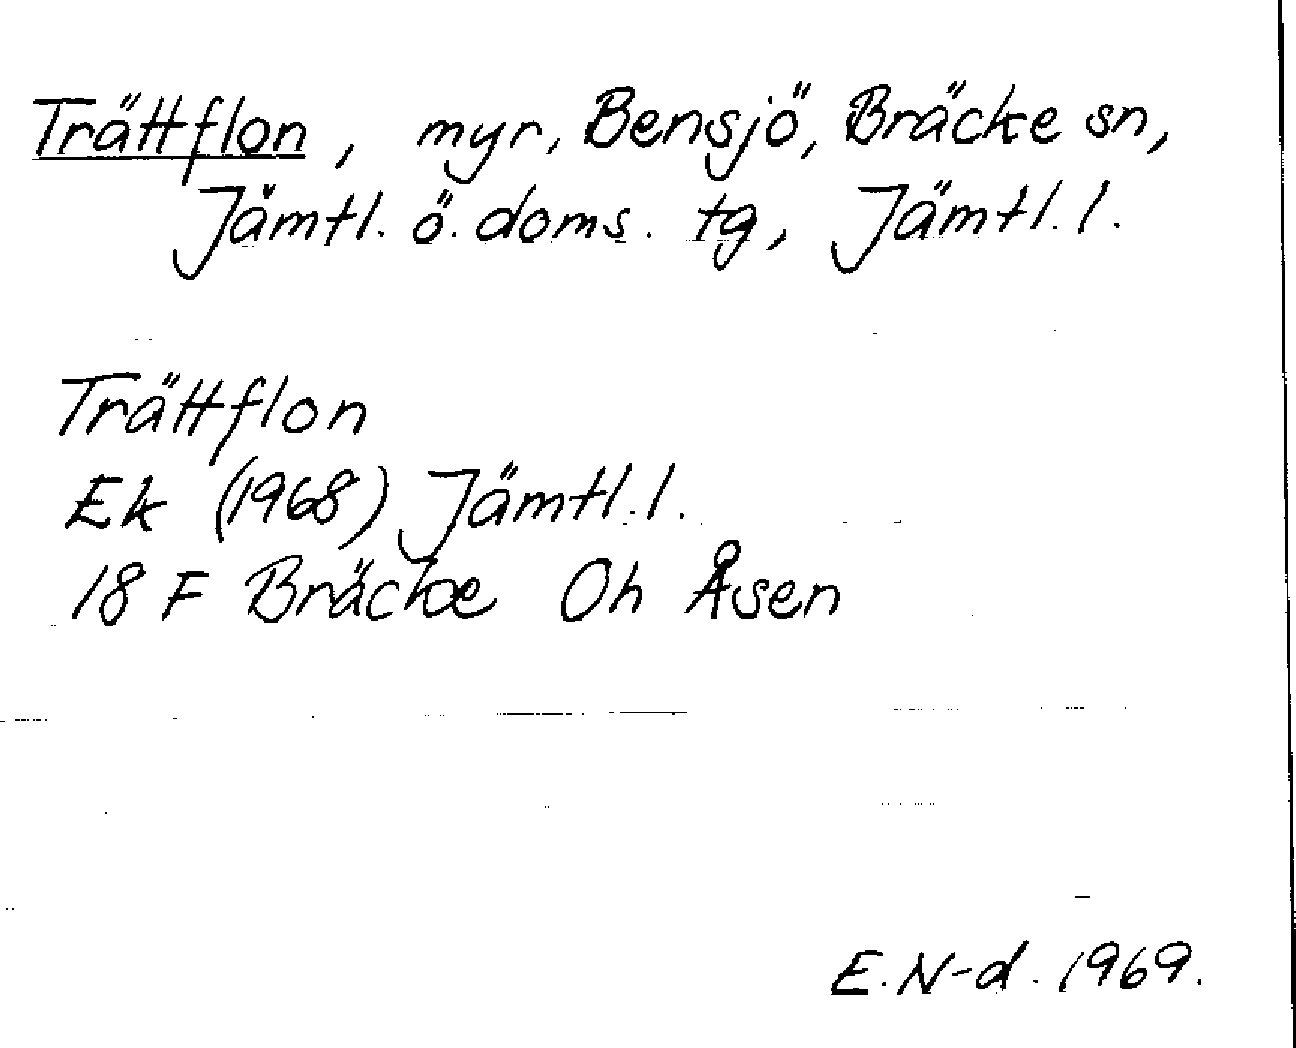 Trättflon, myr, Bensjö, Bräcke sn,
Jämtl. ö. doms. tg, Jämtl. l.
Trättflon
Ek (1968) Jämtl. l.
18 F Bräcke Oh Åsen
E. N-d. 1969.